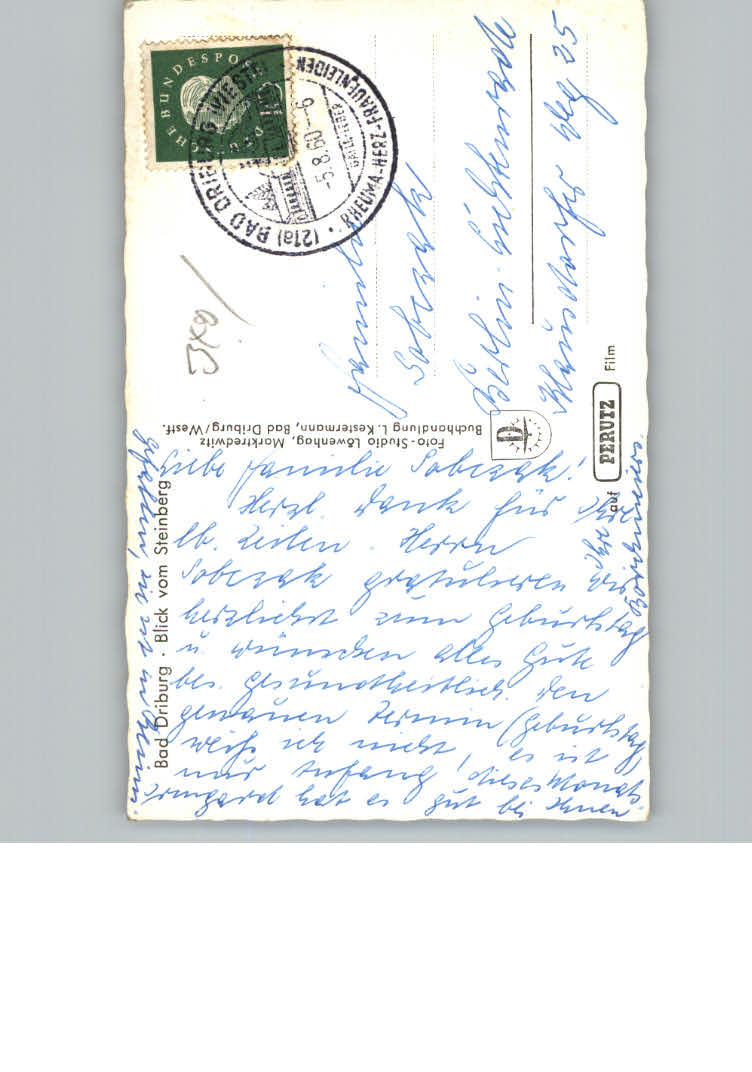 Liebe Familie Sobczak!
Herzl. Dank für Ihre
lb. Zeilen. Herrn
Sobczak gratulieren wir
herzlichst zum Geburtstag
u. wünschen alles Gute
bes. gesundheitlich. Den
genauen Termin (Geburtstag)
weiß ich nicht, es ist
nur Anfang dieses Monats.
Irmgard hat es gut bei Ihnen
gefallen, sie ist in
Ihre
Familie
Sobczak
Berlin-Lichtenrade
25
Bad Driburg · Blick vom Steinberg
Foto-Studio Löwenhag, Marktredwitz
Buchhandlung L. Kestermann, Bad Driburg/Westf.
D
auf PERUTZ Film
DEUTSCHE BUNDESPOST
(21a) BAD DRIBURG (WESTF)
-5.8.60--6
RHEUMA-HERZ-FRAUENLEIDEN